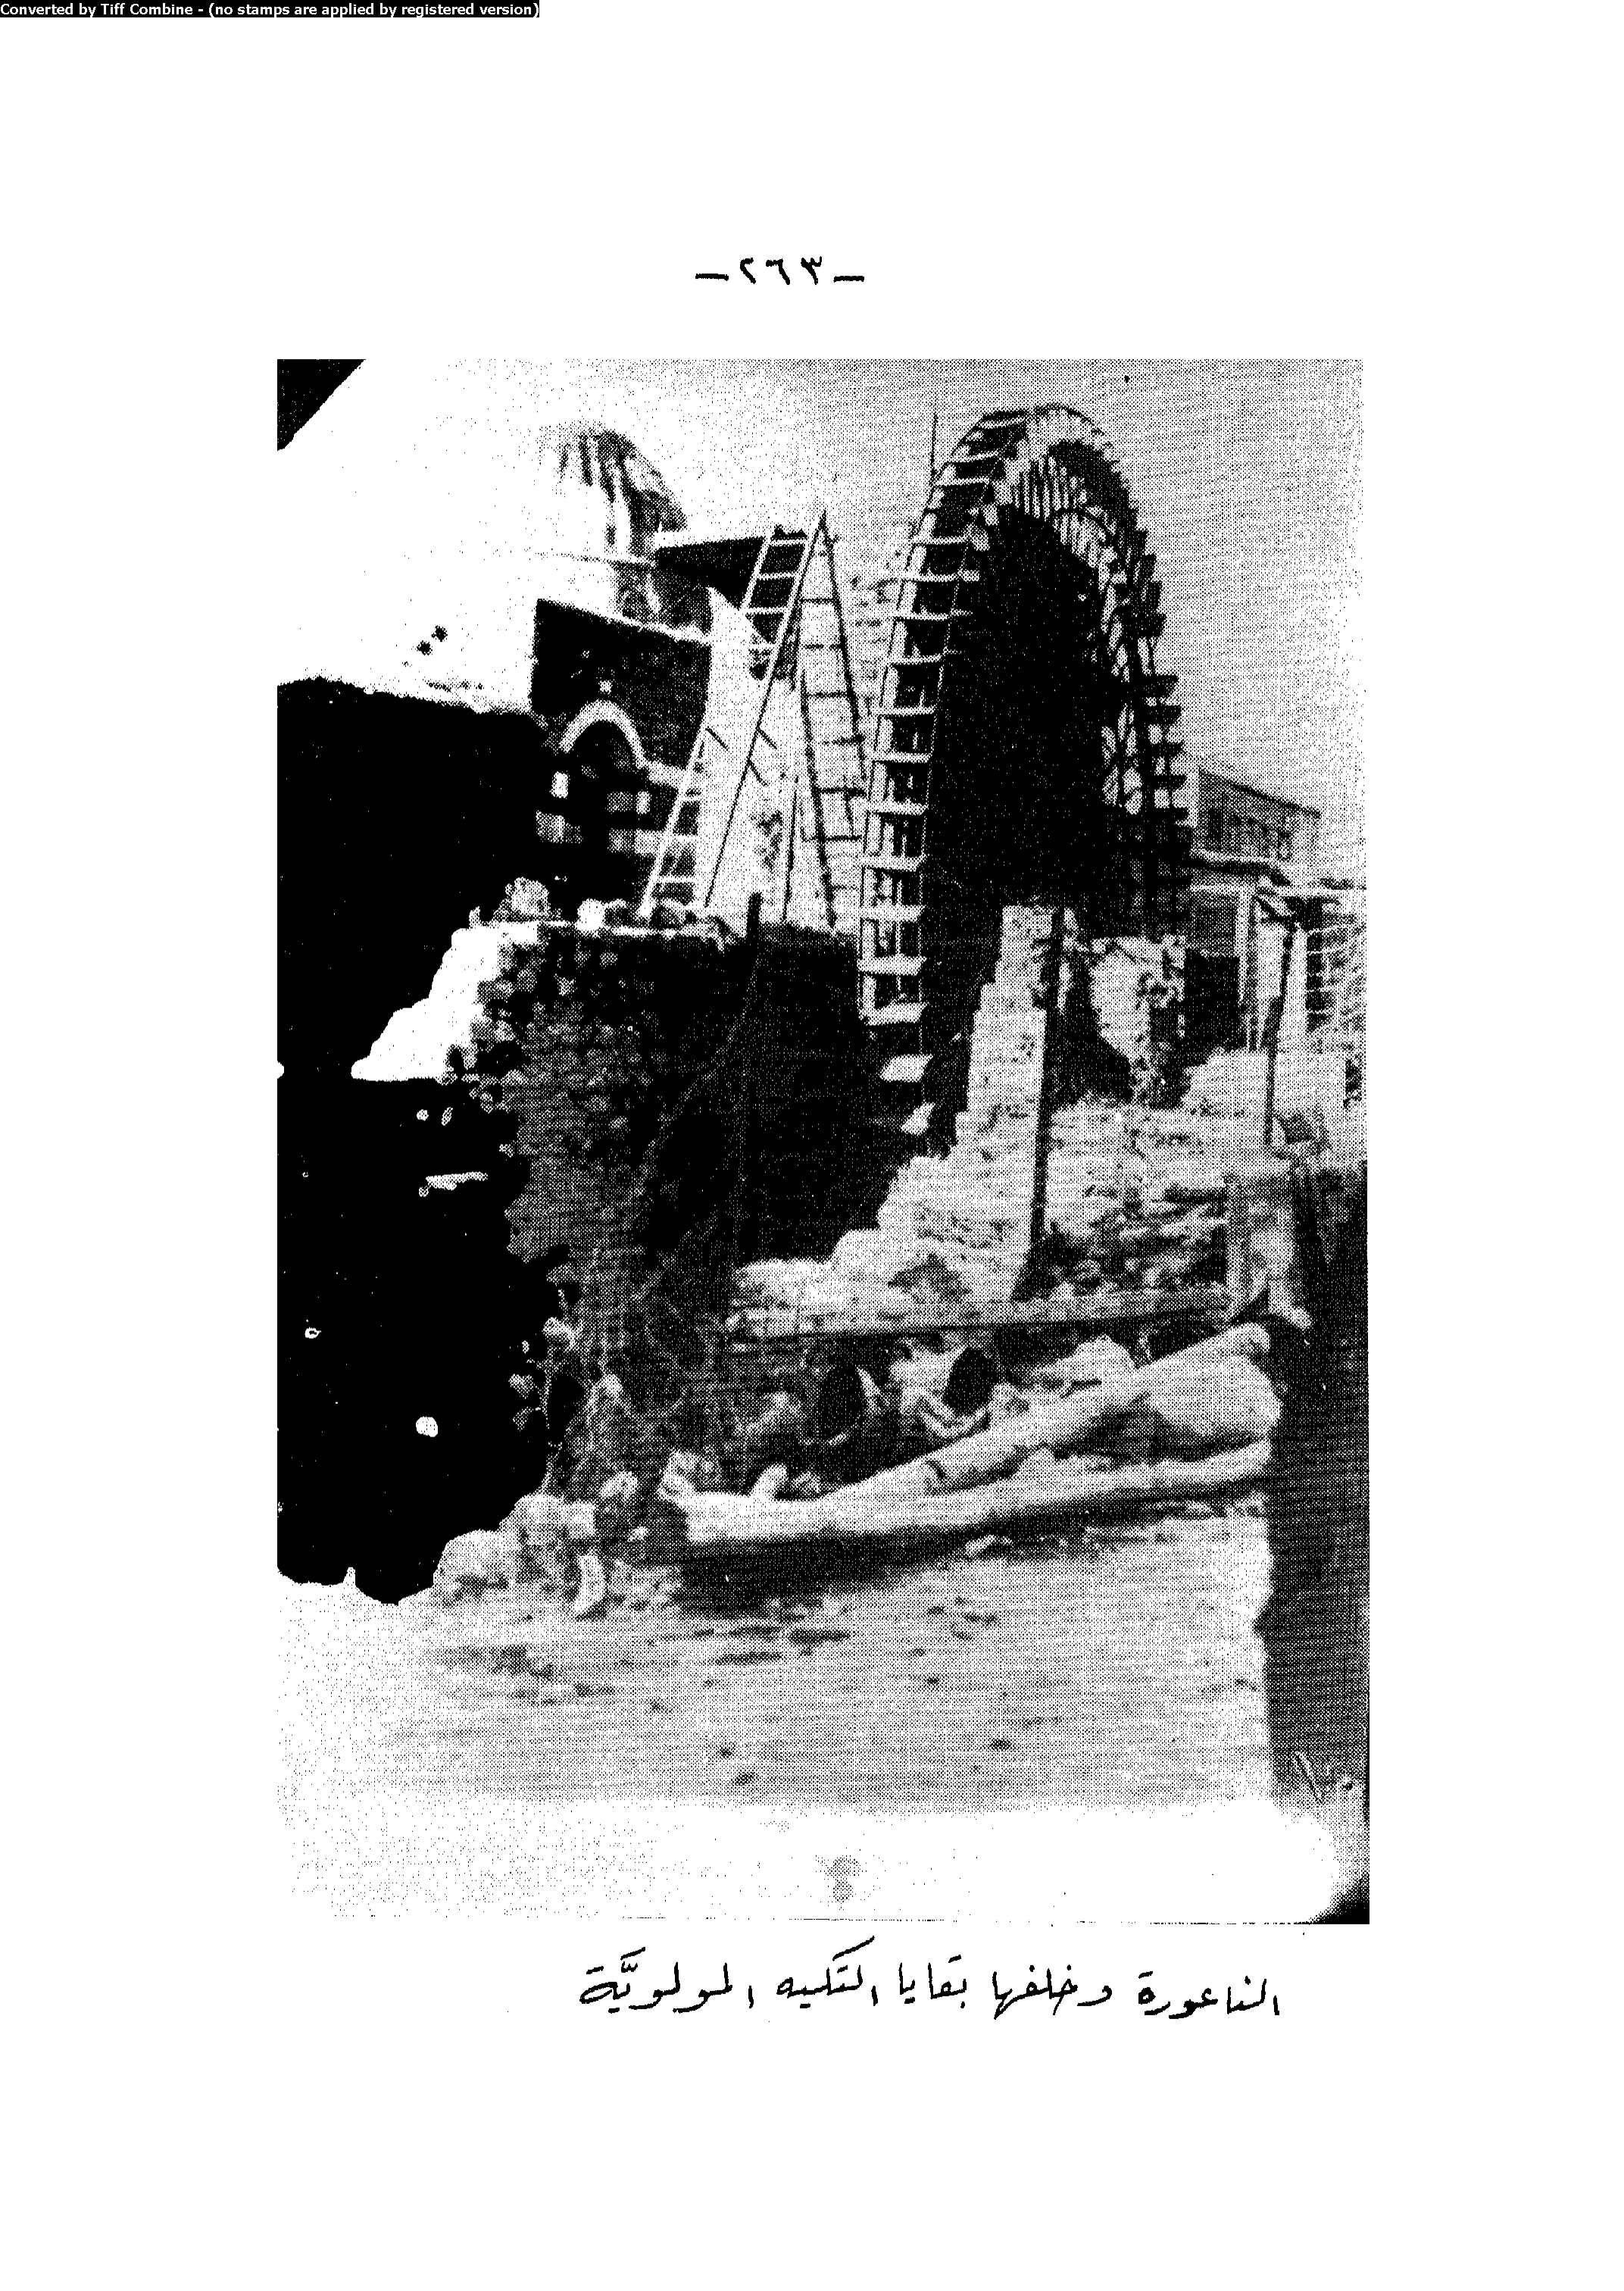 Converted by Tiff Combine - (no stamps are applied by registered version)
-٢٦٣-
الناعورة وخلفها بقايا التكيه المولويَّة